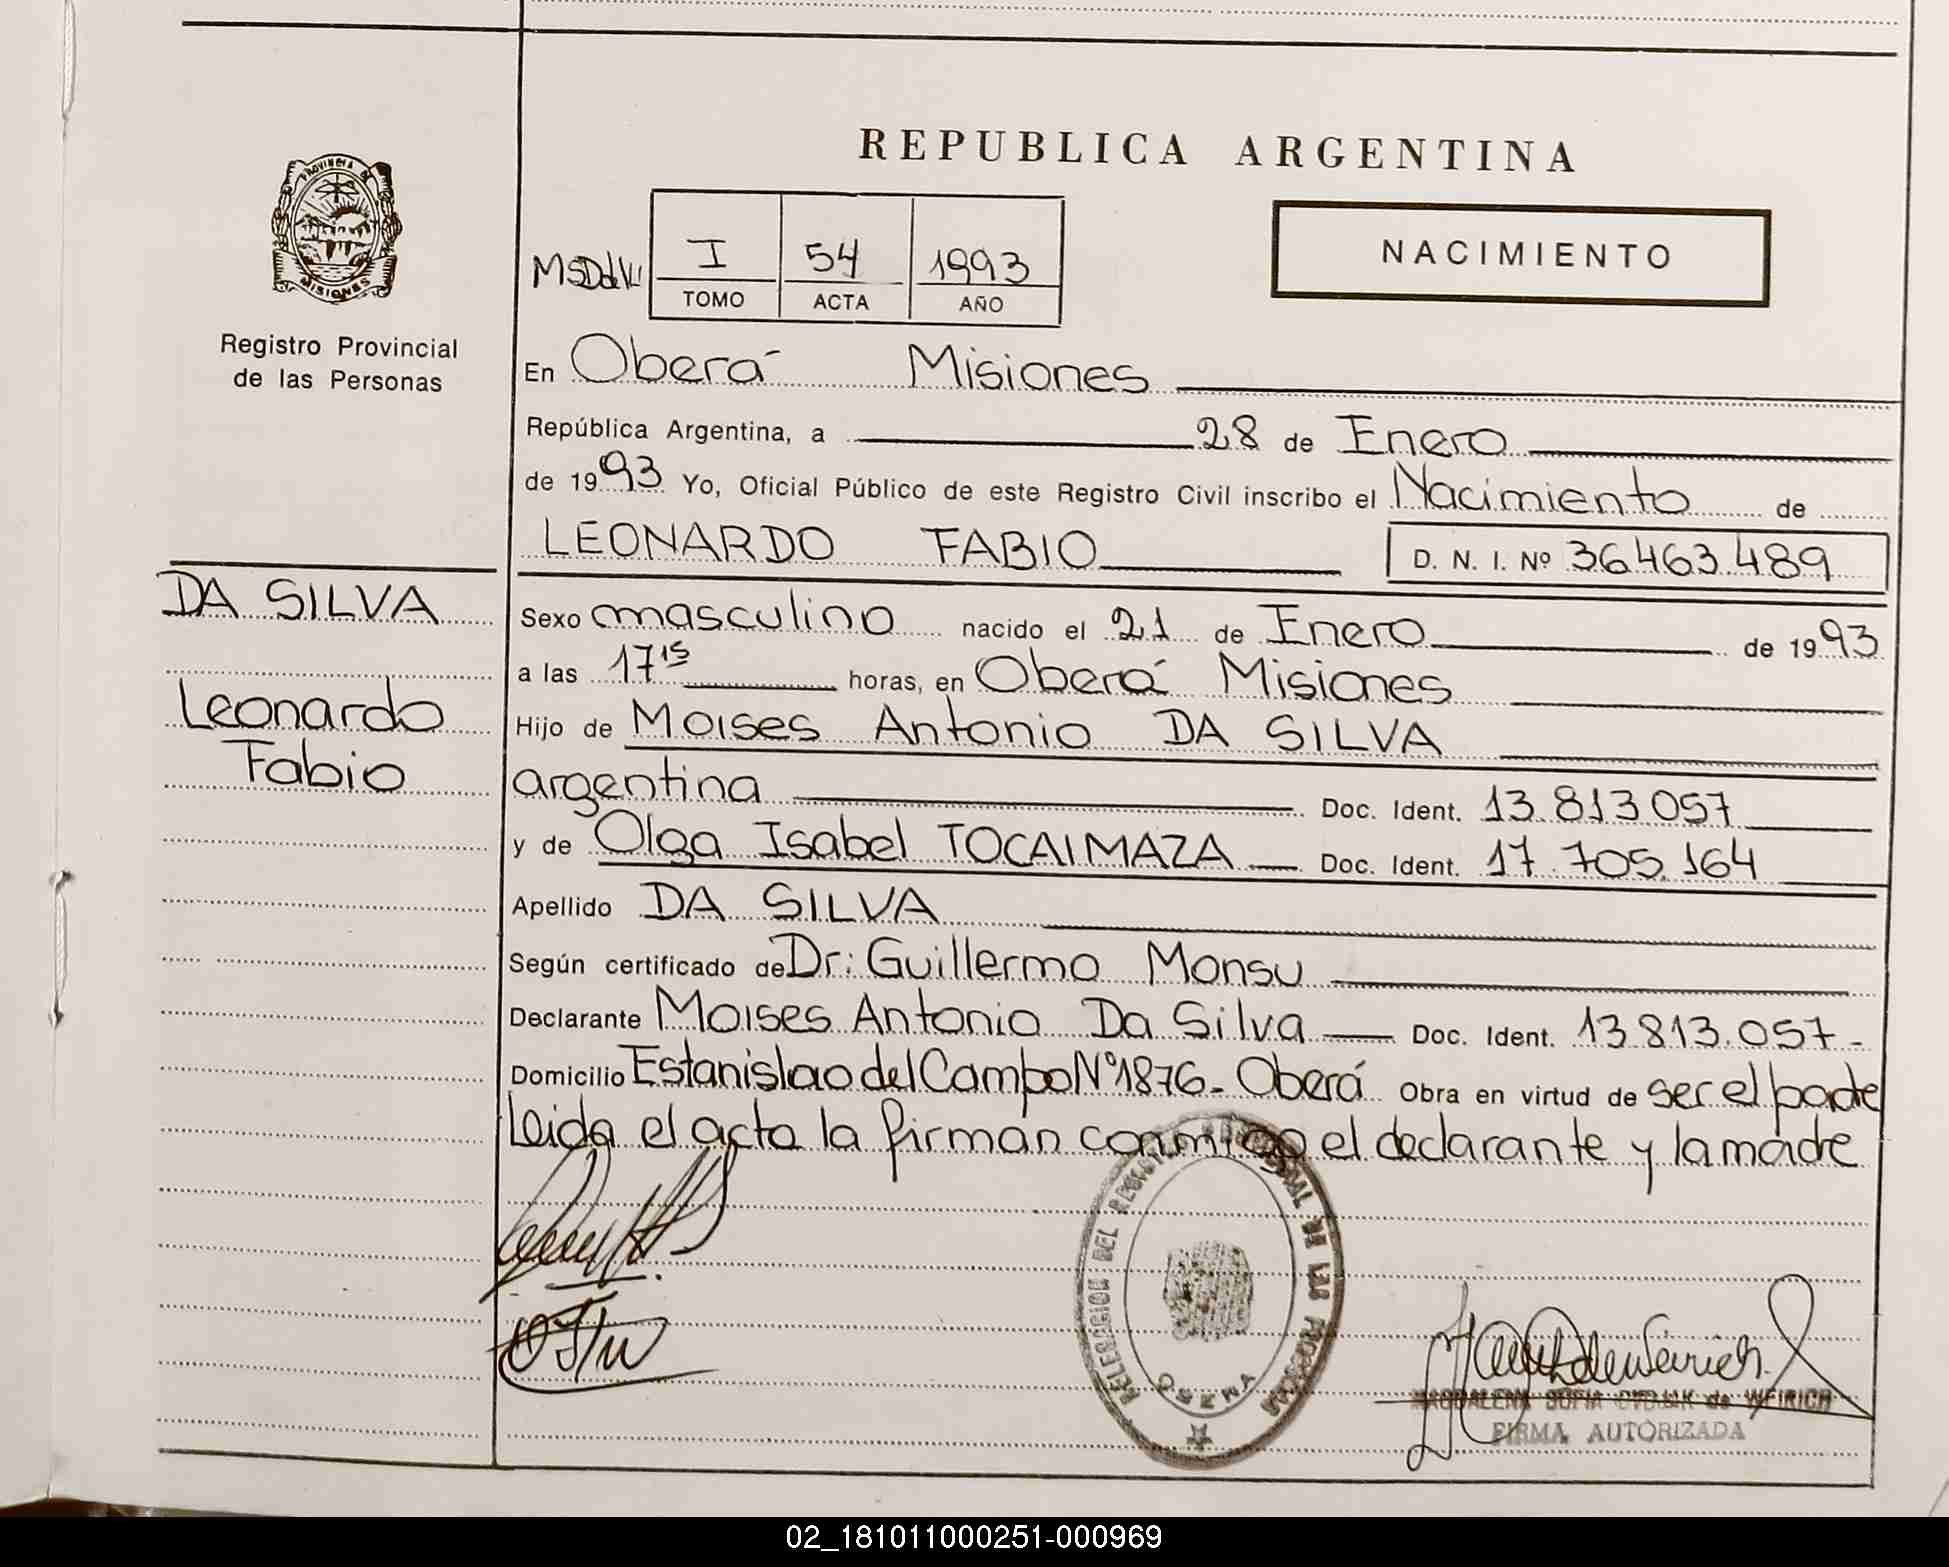 REPUBLICA ARGENTINA
PROVINCIA DE MISIONES
NACIMIENTO
I 54 1993
TOMO ACTA AÑO
Registro Provincial
de las Personas
En Oberá Misiones
República Argentina, a 28 de Enero
de 1993 Yo, Oficial Público de este Registro Civil inscribo el Nacimiento de
LEONARDO FABIO D. N. I. Nº 36463489
DA SILVA
Leonardo
Fabio
Sexo masculino nacido el 21 de Enero de 1993
a las 17 15 horas, en Oberá Misiones
Hijo de Moises Antonio DA SILVA
argentina Doc. Ident. 13.813.057
y de Olga Isabel TOCAIMAZA Doc. Ident. 17.705.164
Apellido DA SILVA
Según certificado de Dr: Guillermo Monsu
Declarante Moises Antonio Da Silva Doc. Ident. 13.813.057-
Domicilio Estanislao del Campo Nº1876- Oberá Obra en virtud de ser el padre
Leida el acta la firman conmigo el declarante y la madre
DELEGACION DEL REGISTRO PROVINCIAL DE LAS PERSONAS
OBERA
MAGDALENA SOFIA de WEIRICH
FIRMA AUTORIZADA
02_181011000251-000969